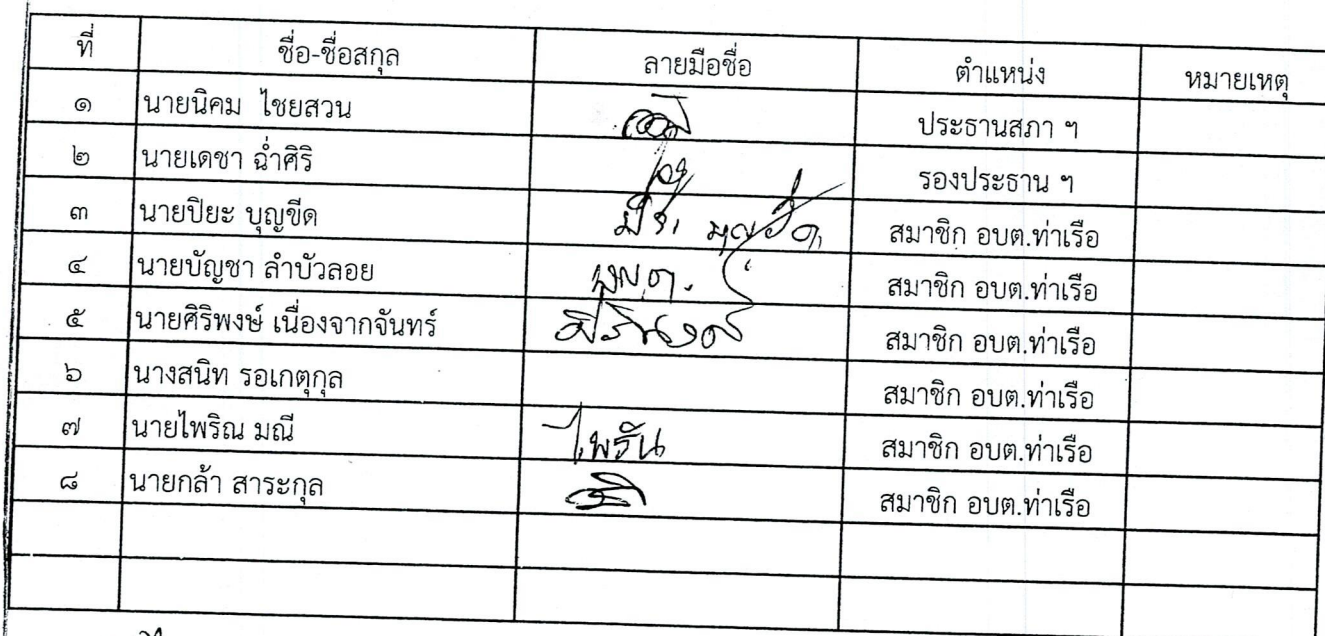 ที่ ชื่อ-ชื่อสกุล ลายมือชื่อ ตำแหน่ง หมายเหตุ
๑ นายนิคม ไชยสวน ประธานสภา ฯ
๒ นายเดชา ฉ่ำศิริ รองประธาน ฯ
๓ นายปิยะ บุญขีด สมาชิก อบต.ท่าเรือ
๔ นายบัญชา ลำบัวลอย สมาชิก อบต.ท่าเรือ
๕ นายศิริพงษ์ เนื่องจากจันทร์ ศิริพงษ์ สมาชิก อบต.ท่าเรือ
๖ นางสนิท รอเกตุกุล สมาชิก อบต.ท่าเรือ
๗ นายไพริณ มณี ไพริน สมาชิก อบต.ท่าเรือ
๘ นายกล้า สาระกุล สมาชิก อบต.ท่าเรือ